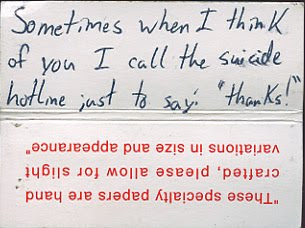 Sometimes when I think
of you I call the suicide
hotline just to say: "thanks!"
"These specialty papers are hand
crafted, please allow for slight
variations in size and appearance"